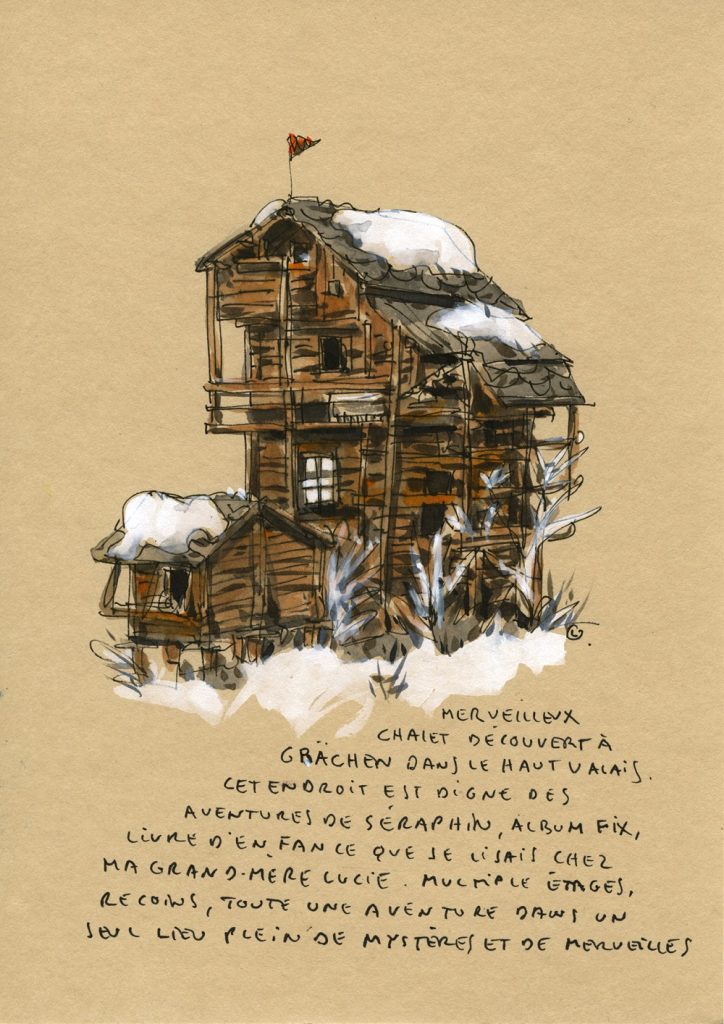 MERVEILLEUX
CHALET DÉCOUVERT À
GRÄCHEN DANS LE HAUT VALAIS.
CET ENDROIT EST DIGNE DES
AVENTURES DE SÉRAPHIN, ALBUM FIX,
LIVRE D'ENFANCE QUE JE LISAIS CHEZ
MA GRAND-MÈRE LUCIE. MULTIPLE ÉTAGES,
RECOINS, TOUTE UNE AVENTURE DANS UN
SEUL LIEU PLEIN DE MYSTÈRES ET DE MERVEILLES